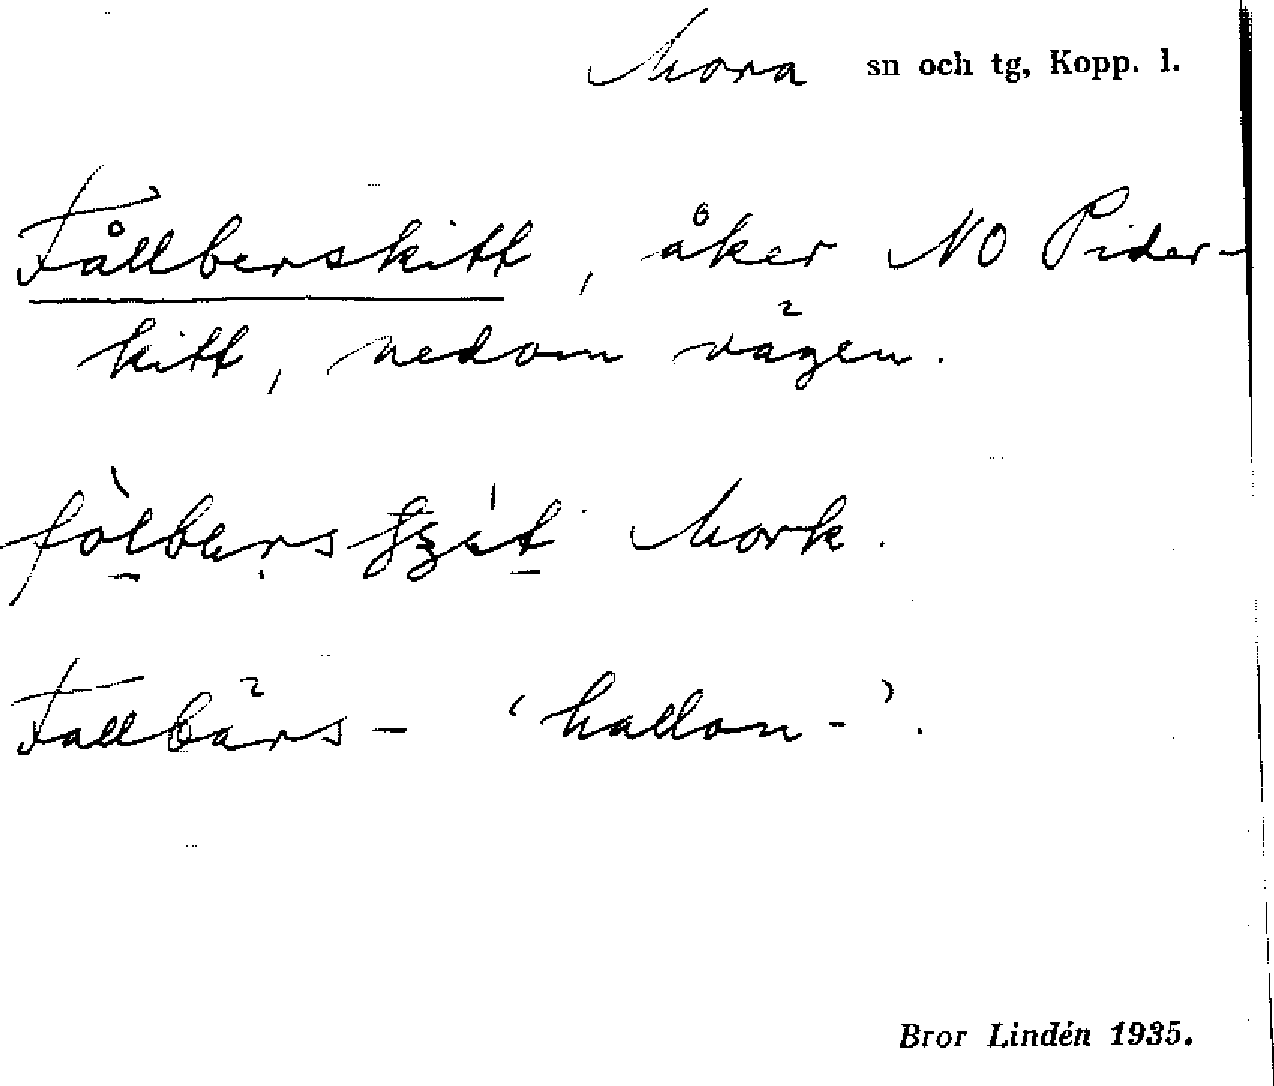 Mora sn och tg, Kopp. l.
Fållberskitt, åker NO Pider-
kitt, nedom vägen.
Mork.
Fallbärs- 'hallon-'.
Bror Lindén 1935.